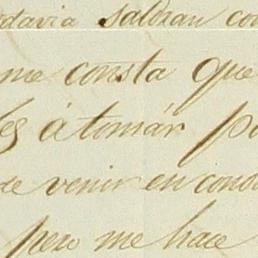 todavia saldran con
me consta que
átomár po
de venir en cons
pero me hace